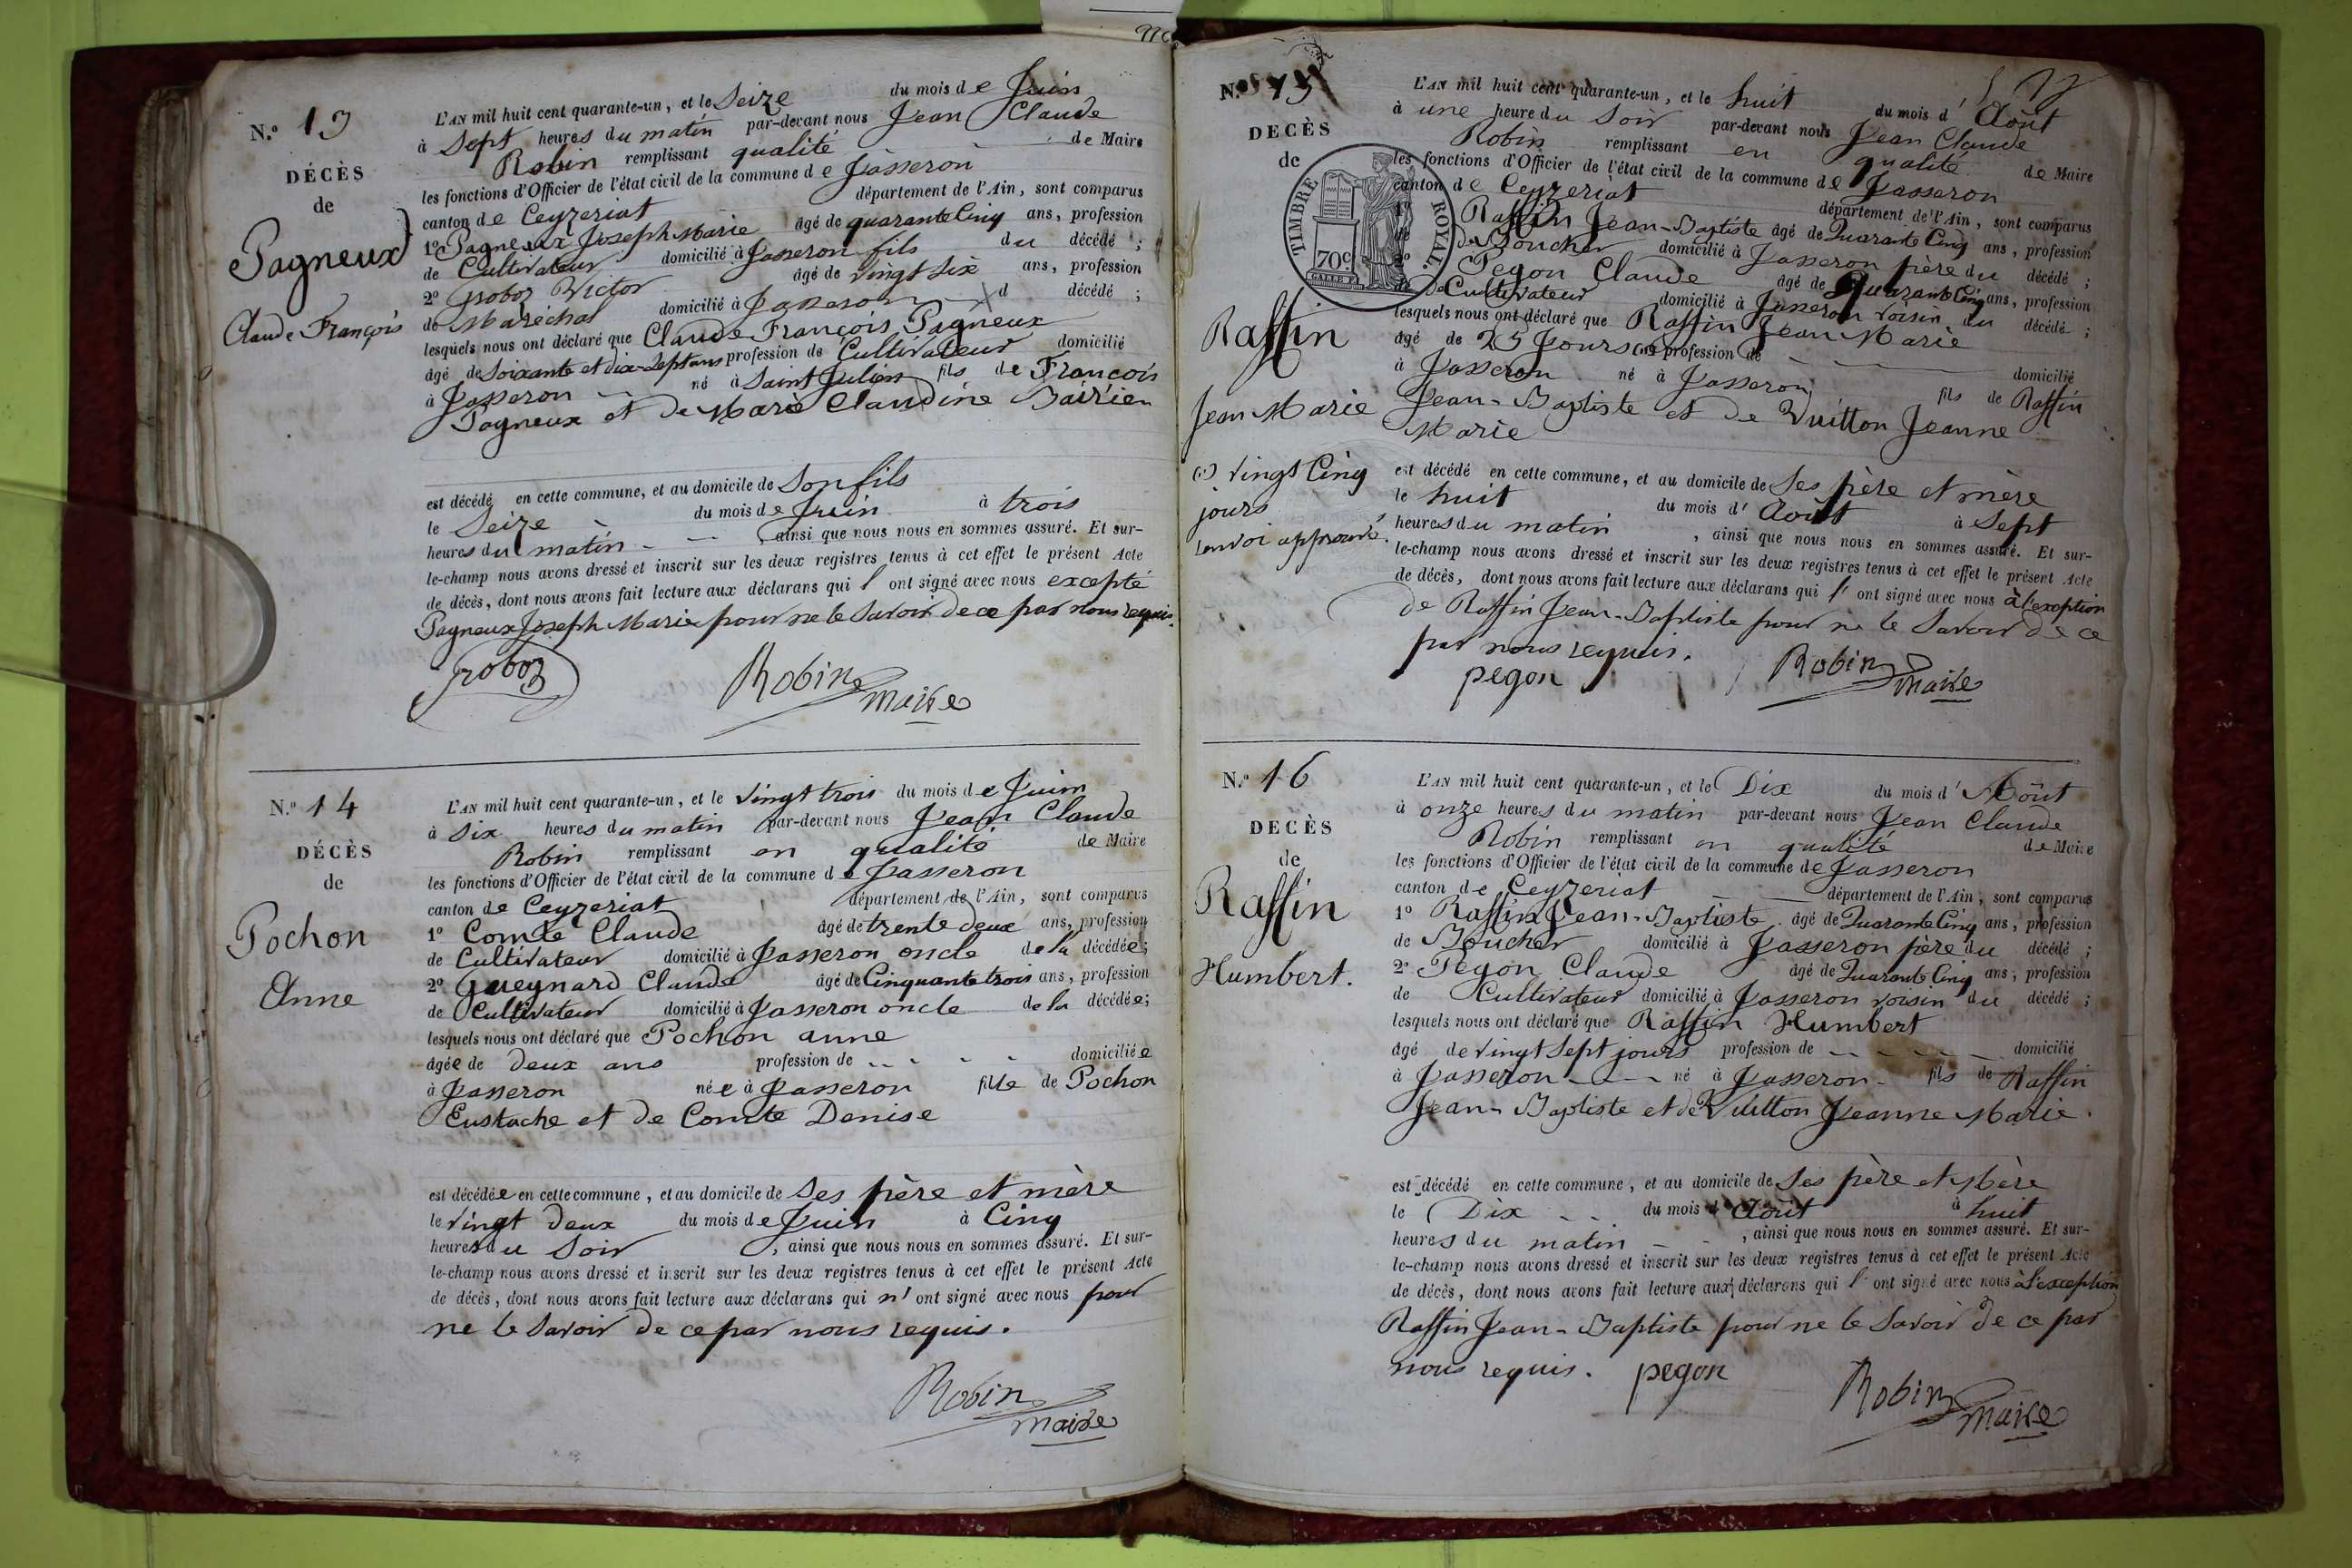 N.º 13
DÉCÈS
de
Pagneux
Claude François
L'AN mil huit cent quarante-un, et le Seize du mois de Juin
à Sept heures du matin par-devant nous Jean Claude
Robin remplissant qualité de Maire
les fonctions d'Officier de l'état civil de la commune de Jasseron
canton de Ceyzeriat département de l'Ain, sont comparus
1º Pagneux Joseph Marie âgé de quarante Cinq ans, profession
de Cultivateur domicilié à Jasseron fils du décédé ;
2º Groboz Victor âgé de vingt Six ans, profession
de Maréchal domicilié à Jasseron d décédé ;
lesquels nous ont déclaré que Claude François Pagneux
âgé de Soixante et dix-Sept ans profession de Cultivateur domicilié
à Jasseron né à Saint Julien fils de François
Pagneux et de Marie Claudine
est décédé en cette commune, et au domicile de Son fils
le Seize du mois de Juin à trois
heures du matin - - ainsi que nous nous en sommes assuré. Et sur-
le-champ nous avons dressé et inscrit sur les deux registres tenus à cet effet le présent Acte
de décès, dont nous avons fait lecture aux déclarans qui l' ont signé avec nous excepté
Pagneux Joseph Marie pour ne le Savoir de ce par nous requis.
Groboz Robin
maire
N.º 14
DÉCÈS
de
Pochon
Anne
L'AN mil huit cent quarante-un, et le vingt trois du mois de Juin
à Six heures du matin par-devant nous Jean Claude
Robin remplissant en qualité de Maire
les fonctions d'Officier de l'état civil de la commune de Jasseron
canton de Ceyzeriat département de l'Ain, sont comparus
1º Comte Claude âgé de trente deux ans, profession
de Cultivateur domicilié à Jasseron oncle de la décédée ;
2º Gueynard Claude âgé de Cinquante trois ans, profession
de Cultivateur domicilié à Jasseron oncle de la décédée ;
lesquels nous ont déclaré que Pochon anne
âgée de deux ans profession de - - - - domiciliée
à Jasseron née à Jasseron fille de Pochon
Eustache et de Comte Denise
est décédée en cette commune, et au domicile de Ses père et mère
le vingt deux du mois de Juin à Cinq
heures du Soir , ainsi que nous nous en sommes assuré. Et sur-
le-champ nous avons dressé et inscrit sur les deux registres tenus à cet effet le présent Acte
de décès, dont nous avons fait lecture aux déclarans qui n' ont signé avec nous pour
ne le Savoir de ce par nous requis.
Robin
maire
N.º 15
DECÈS
de
TIMBRE ROYAL.
70c
Raffin
Jean Marie
(1) vingt Cinq
jours
renvoi approuvé.
L'AN mil huit cent quarante-un, et le huit du mois d' Août
à une heure du Soir par-devant nous Jean Claude
Robin remplissant en qualité de Maire
les fonctions d'Officier de l'état civil de la commune de Jasseron
canton de Ceyzeriat département de l'Ain, sont comparus
1º Raffin Jean-Baptiste âgé de Quarante Cinq ans, profession
de Boucher domicilié à Jasseron père du décédé ;
2º Pegon Claude âgé de Quarante Cinq ans, profession
de Cultivateur domicilié à Jasseron voisin du décédé ;
lesquels nous ont déclaré que Raffin Jean Marie
âgé de 25 Jours (1) profession de domicilié
à Jasseron né à Jasseron fils de Raffin
Jean-Baptiste et de Vuitton Jeanne
Marie
est décédé en cette commune, et au domicile de Ses père et mère
le huit du mois d' Août à Sept
heures du matin , ainsi que nous nous en sommes assuré. Et sur-
le-champ nous avons dressé et inscrit sur les deux registres tenus à cet effet le présent Acte
de décès, dont nous avons fait lecture aux déclarans qui l' ont signé avec nous à l'exception
de Raffin Jean-Baptiste pour ne le Savoir de ce
par nous requis.
pegon Robin
maire
N.º 16
DECÈS
de
Raffin
Humbert.
L'AN mil huit cent quarante-un, et le Dix du mois d' Août
à onze heures du matin par-devant nous Jean Claude
Robin remplissant en qualité de Maire
les fonctions d'Officier de l'état civil de la commune de Jasseron
canton de Ceyzeriat département de l'Ain, sont comparus
1º Raffin Jean-Baptiste âgé de Quarante Cinq ans, profession
de Boucher domicilié à Jasseron père du décédé ;
2º Pegon Claude âgé de Quarante Cinq ans, profession
de Cultivateur domicilié à Jasseron voisin du décédé ;
lesquels nous ont déclaré que Raffin Humbert
âgé de vingt Sept jours profession de - - - - - domicilié
à Jasseron - - - né à Jasseron - fils de Raffin
Jean-Baptiste et de Vuitton Jeanne Marie.
est décédé en cette commune, et au domicile de Ses père et Mère
le Dix - - du mois d' Août à huit
heures du matin - - , ainsi que nous nous en sommes assuré. Et sur-
le-champ nous avons dressé et inscrit sur les deux registres tenus à cet effet le présent Acte
de décès, dont nous avons fait lecture aux déclarans qui l' ont signé avec nous à L'exception
Raffin Jean-Baptiste pour ne le Savoir de ce par
nous requis. pegon Robin
maire